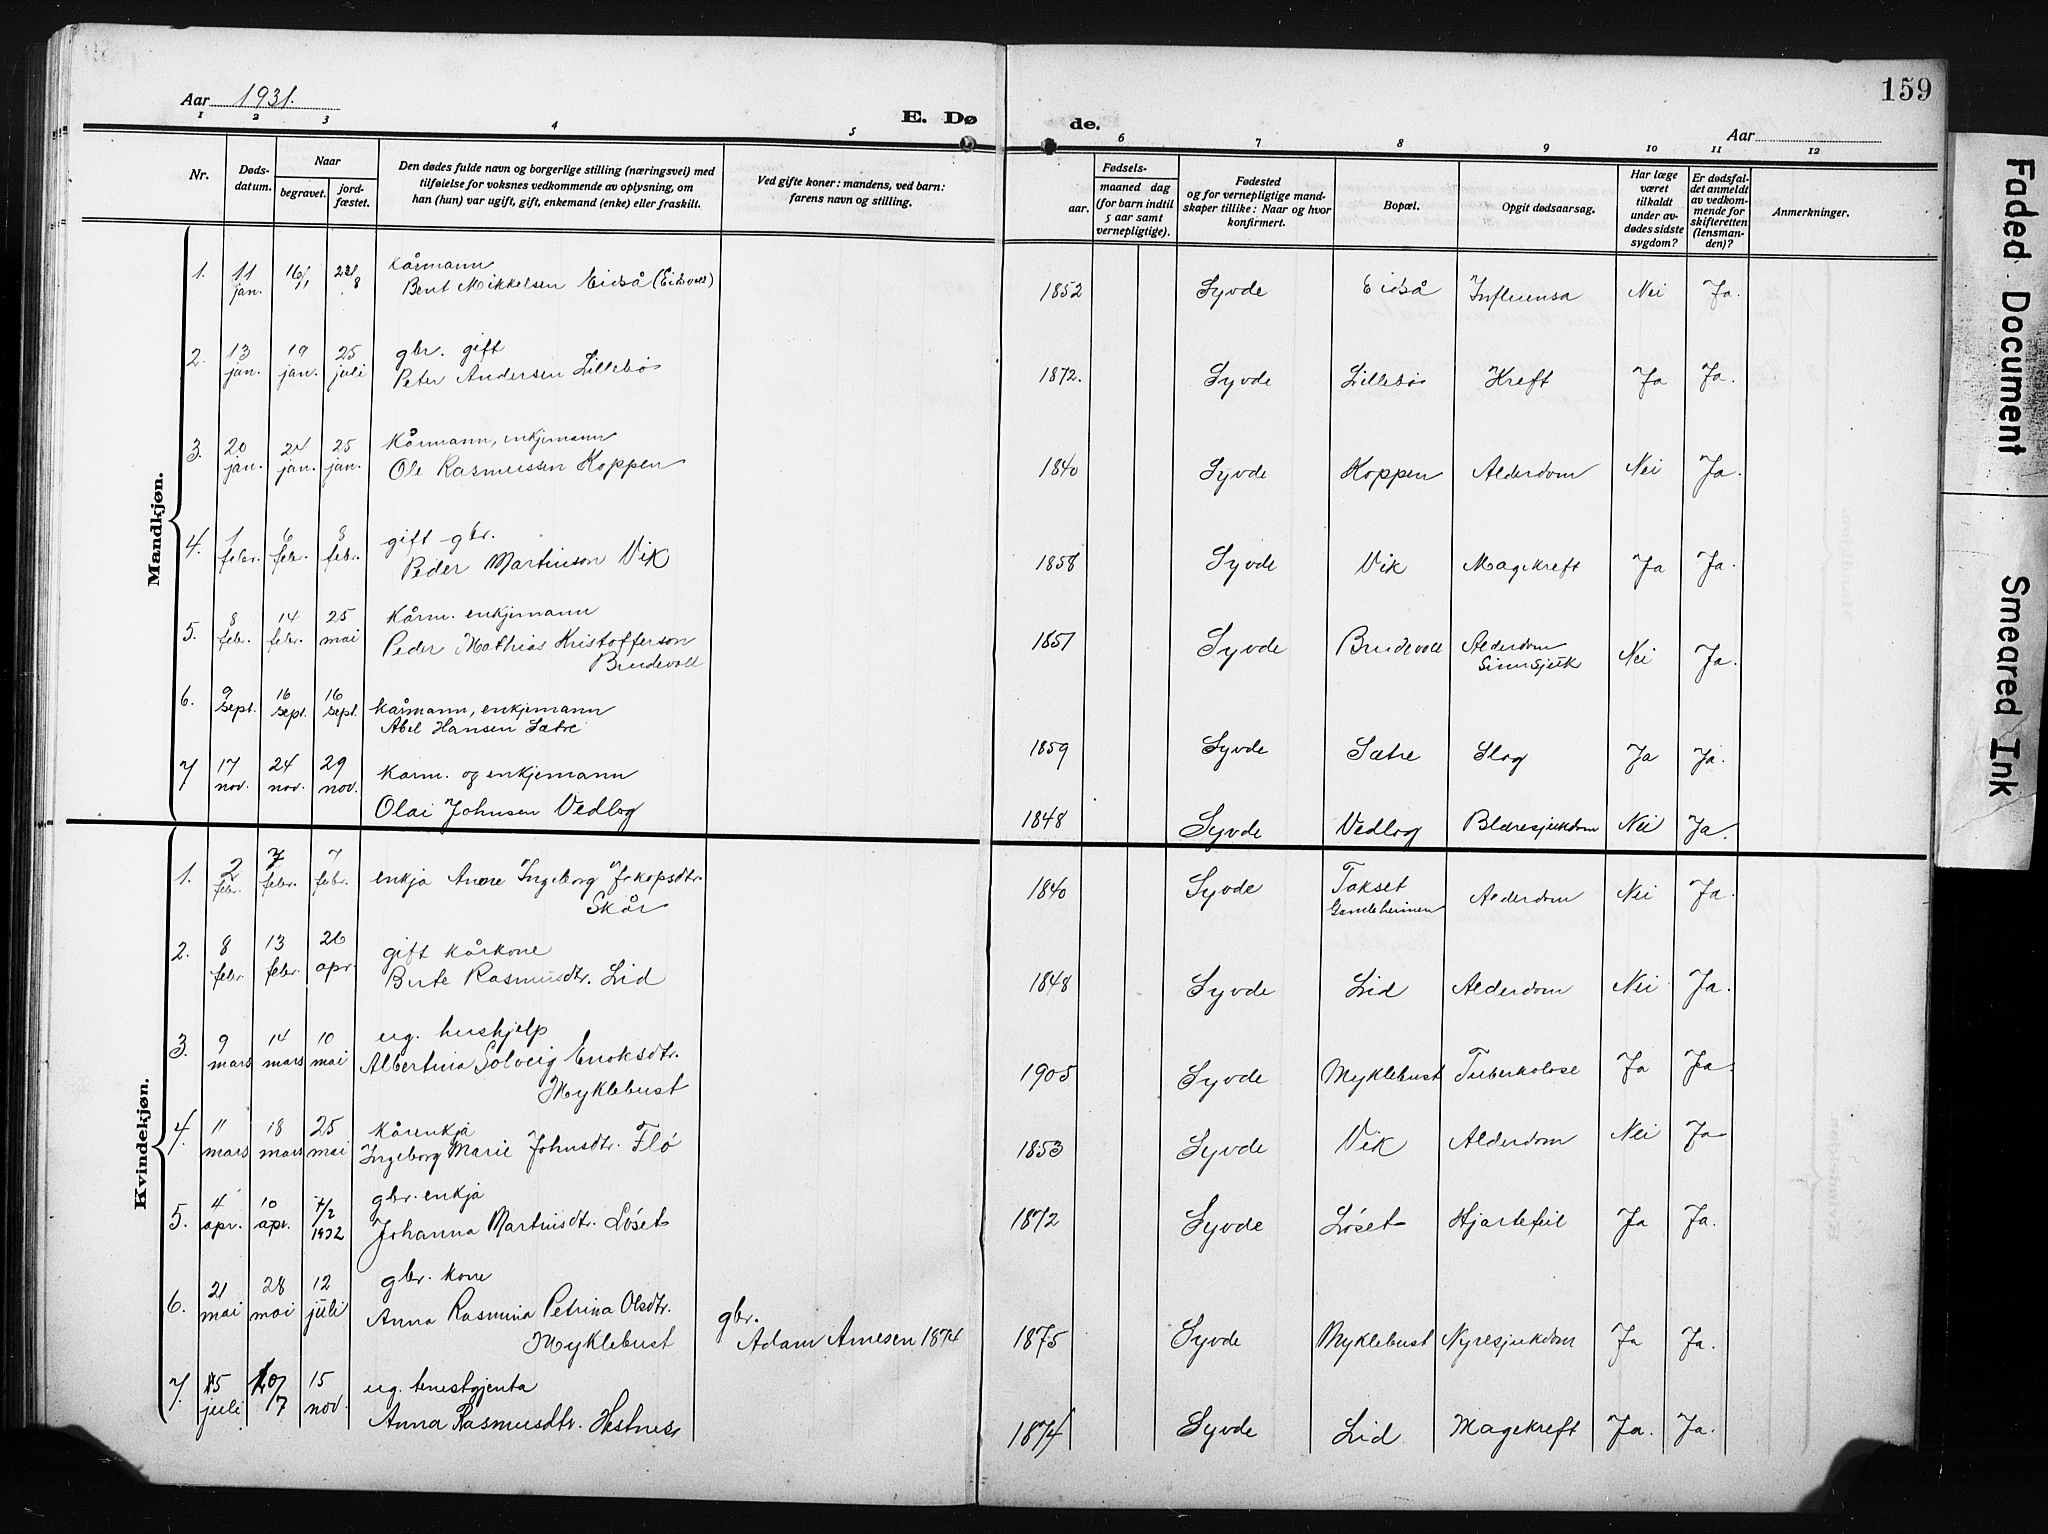 159
Aar 1931.
E. Dø de.
Aar
1 2 3 4 5 6 7 8 9 10 11 12
Nr.
Døds-
datum.
Naar
begravet.
jord-
fæstet.
Den dødes fulde navn og borgerlige stilling (næringsvei) med
tilføielse for voksnes vedkommende av oplysning, om
han (hun) var ugift, gift, enkemand (enke) eller fraskilt.
Ved gifte koner: mandens, ved barn:
farens navn og stilling.
Fødsels-
aar.
maaned dag
(for barn indtil
5 aar samt
vernepligtige).
Fødested
og for vernepligtige mand-
skaper tillike: Naar og hvor
konfirmert.
Bopæl.
Opgit dødsaarsag.
Har læge
været
tilkaldt
under av-
dødes sidste
sygdom?
Er dødsfal-
det anmeldt
av vedkom-
mende for
skifteretten
(lensman-
den)?
Anmerkninger.
Mandkjøn.
1. 11 jan. 16/1 Kårmann
Bent Mikkelsen Eidså (Eidsvoll) 1852 Syvde Eidså Influensa Nei Ja.
2. 13 jan. 19 jan. 25 juli gbr. gift
Peter Andersen Lillebø 1872. Syvde Lillebø Kreft Ja Ja.
3. 20 jan. 24 jan. 25 jan. Kårmann, enkjemann
Ole Rasmussen Koppen 1840 Syvde Koppen Alderdom Nei Ja.
4. 1 febr. 6 febr. 8 febr. gift gbr.
Peder Martinson Vik 1858 Syvde Vik Magekreft Ja Ja.
5. 8 febr. 14 febr. 25 mai Kårm. enkjemann
Peder Mathias Kristofferson
Brudevoll 1851 Syvde Brudevoll Alderdom
Sinnsjuk Nei Ja.
6. 9 sept. 16 sept. 16 sept. Kårmann, enkjemann
Abel Hansen Sætre 1859 Syvde Sætre Slag Ja Ja.
7 17 nov. 24 nov. 29 nov. Kårm. og enkjemann
Olai Johnsen Vedlog 1848 Syvde Vedlog Blæresjukdom Nei Ja.
Kvindekjøn.
1. 2 febr. 7 febr. 7 febr. enkja Anne Ingeborg Jakopsdtr.
Skår 1840 Syvde Takset
Gamleheimen Alderdom Nei Ja.
2. 8 febr. 13 febr. 26 apr. gift kårkone
Berte Rasmusdtr. Lid 1848 Syvde Lid Alderdom Nei Ja.
3. 9 mars 14 mars 10 mai ug. hushjelp
Albertina Solveig Enoksdtr.
Myklebust 1905 Syvde Myklebust Tuberkolose Ja Ja.
4. 11 mars 18 mars 25 mai Kårenkja
Ingeborg Marie Johnsdtr. Flo 1853 Syvde Vik Alderdom Nei Ja
5. 4 apr. 10 apr. 7/2 1932 gbr. enkja
Johanna Martinsdtr. Løset 1872 Syvde Løset Hjartefeil Ja Ja.
6. 21 mai 28 mai 12 juli gbr. kone
Anna Rasmina Petrina Olsdtr.
Myklebust gbr.
Adam Arnesen 1874 1875 Syvde Myklebust Nyresjukdom Ja Ja.
7. 15 juli 15 nov. ug. tenestgjenta
Anna Rasmusdtr. Hestnes 1874 Syvde Lid Magekreft Ja. Ja.
Faded Document
Smeared Ink